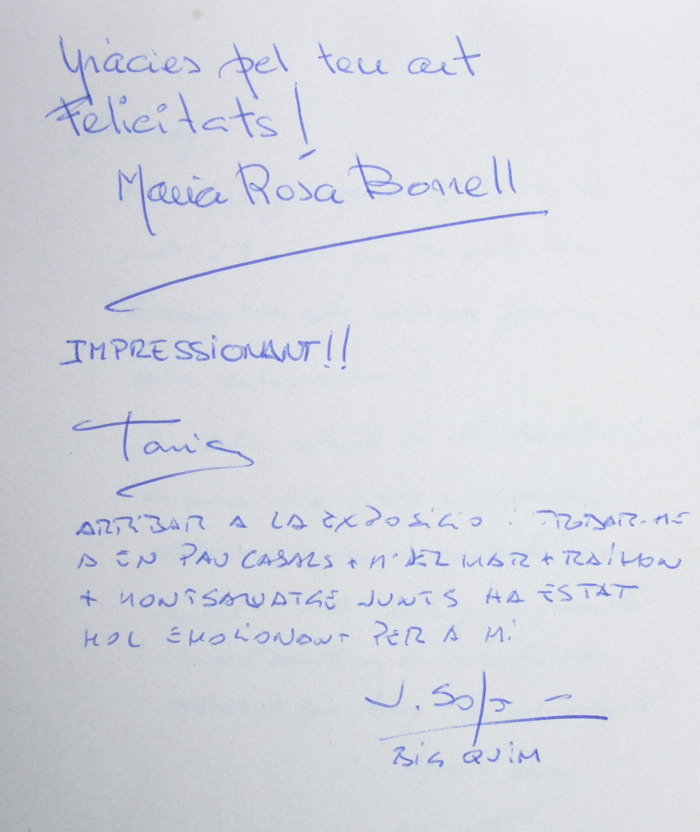 Gràcies pel teu art
Felicitats!
Maria Rosa Borrell
IMPRESSIONANT!!
Tania
ARRIBAR A LA EXPOSICIO I TROBAR-ME
A EN PAU CASALS + Mª DEL MAR + RAIMON
+ MONTSALVATGE JUNTS HA ESTAT
MOL EMOCIONANT PER A MI
J. Sola
BIG QUIM